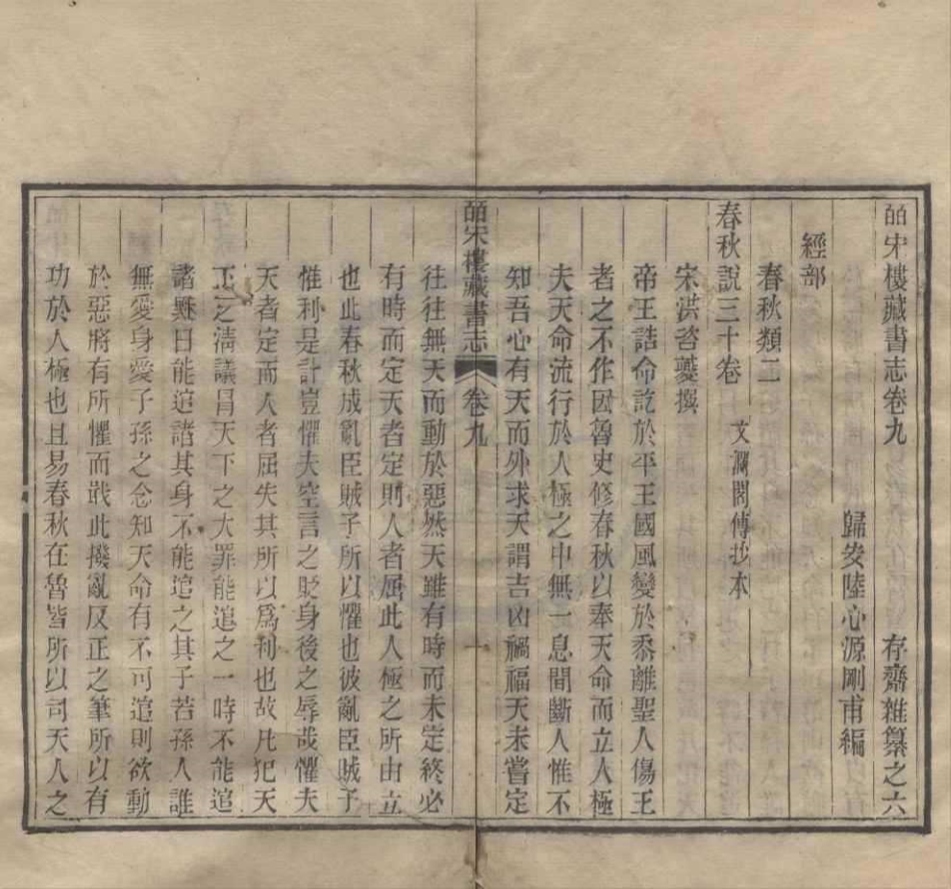 皕宋樓藏書志卷九　存齋雜纂之六
歸安陸心源剛甫編
經部
春秋類二
春秋說三十卷　文瀾閣傳抄本
宋洪咨夔撰
帝王誥命訖於平王國風變於黍離聖人傷王
者之不作因魯史修春秋以奉天命而立人極
夫天命流行於人極之中無一息間斷人惟不
知吾心有天而外求天謂吉凶禍福天未嘗定
皕宋樓藏書志　卷九　一
往往無天而動於惡然天雖有時而未定終必
有時而定天者定則人者屈此人極之所由立
也此春秋成亂臣賊子所以懼也彼亂臣賊子
惟利是計豈懼夫空言之貶身後之辱哉懼夫
天者定而人者屈失其所以爲利也故凡犯天
下之淸議冒天下之大罪能逭之一時不能逭
諸異日能逭諸其身不能逭之其子若孫人誰
無愛身愛子孫之念知天命有不可逭則欲動
於惡將有所懼而戢此撥亂反正之筆所以有
功於人極也且易春秋在魯皆所以司天人之